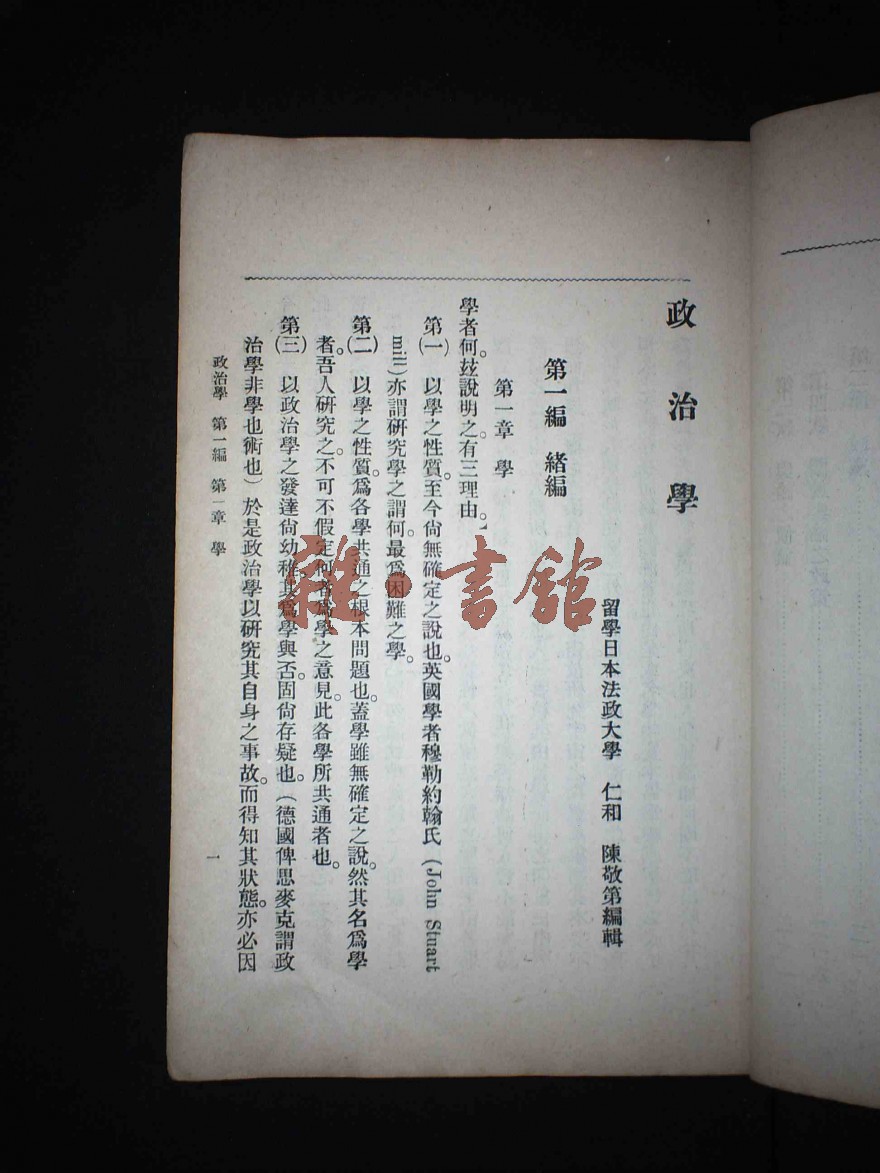 政治學
留學日本法政大學　仁和　陳敬第編輯
第一編　緒編
第一章　學
學者何。茲說明之。有三理由。
第(一)　以學之性質。至今尙無確定之說也。英國學者穆勒約翰氏(John Stuart
mill)亦謂研究學之謂何。最爲困難之學。
第(二)　以學之性質。爲各學共通之根本問題也。蓋學雖無確定之說。然其名爲學
者。吾人研究之。不可不假定何者爲學之意見。此各學所共通者也。
第(三)　以政治學之發達尙幼稚。其爲學與否。固尙存疑也。(德國俾思麥克謂政
治學非學也術也)於是政治學以研究其自身之事故。而得知其狀態。亦必因
政治學　第一編　第一章　學
一
雜·書館